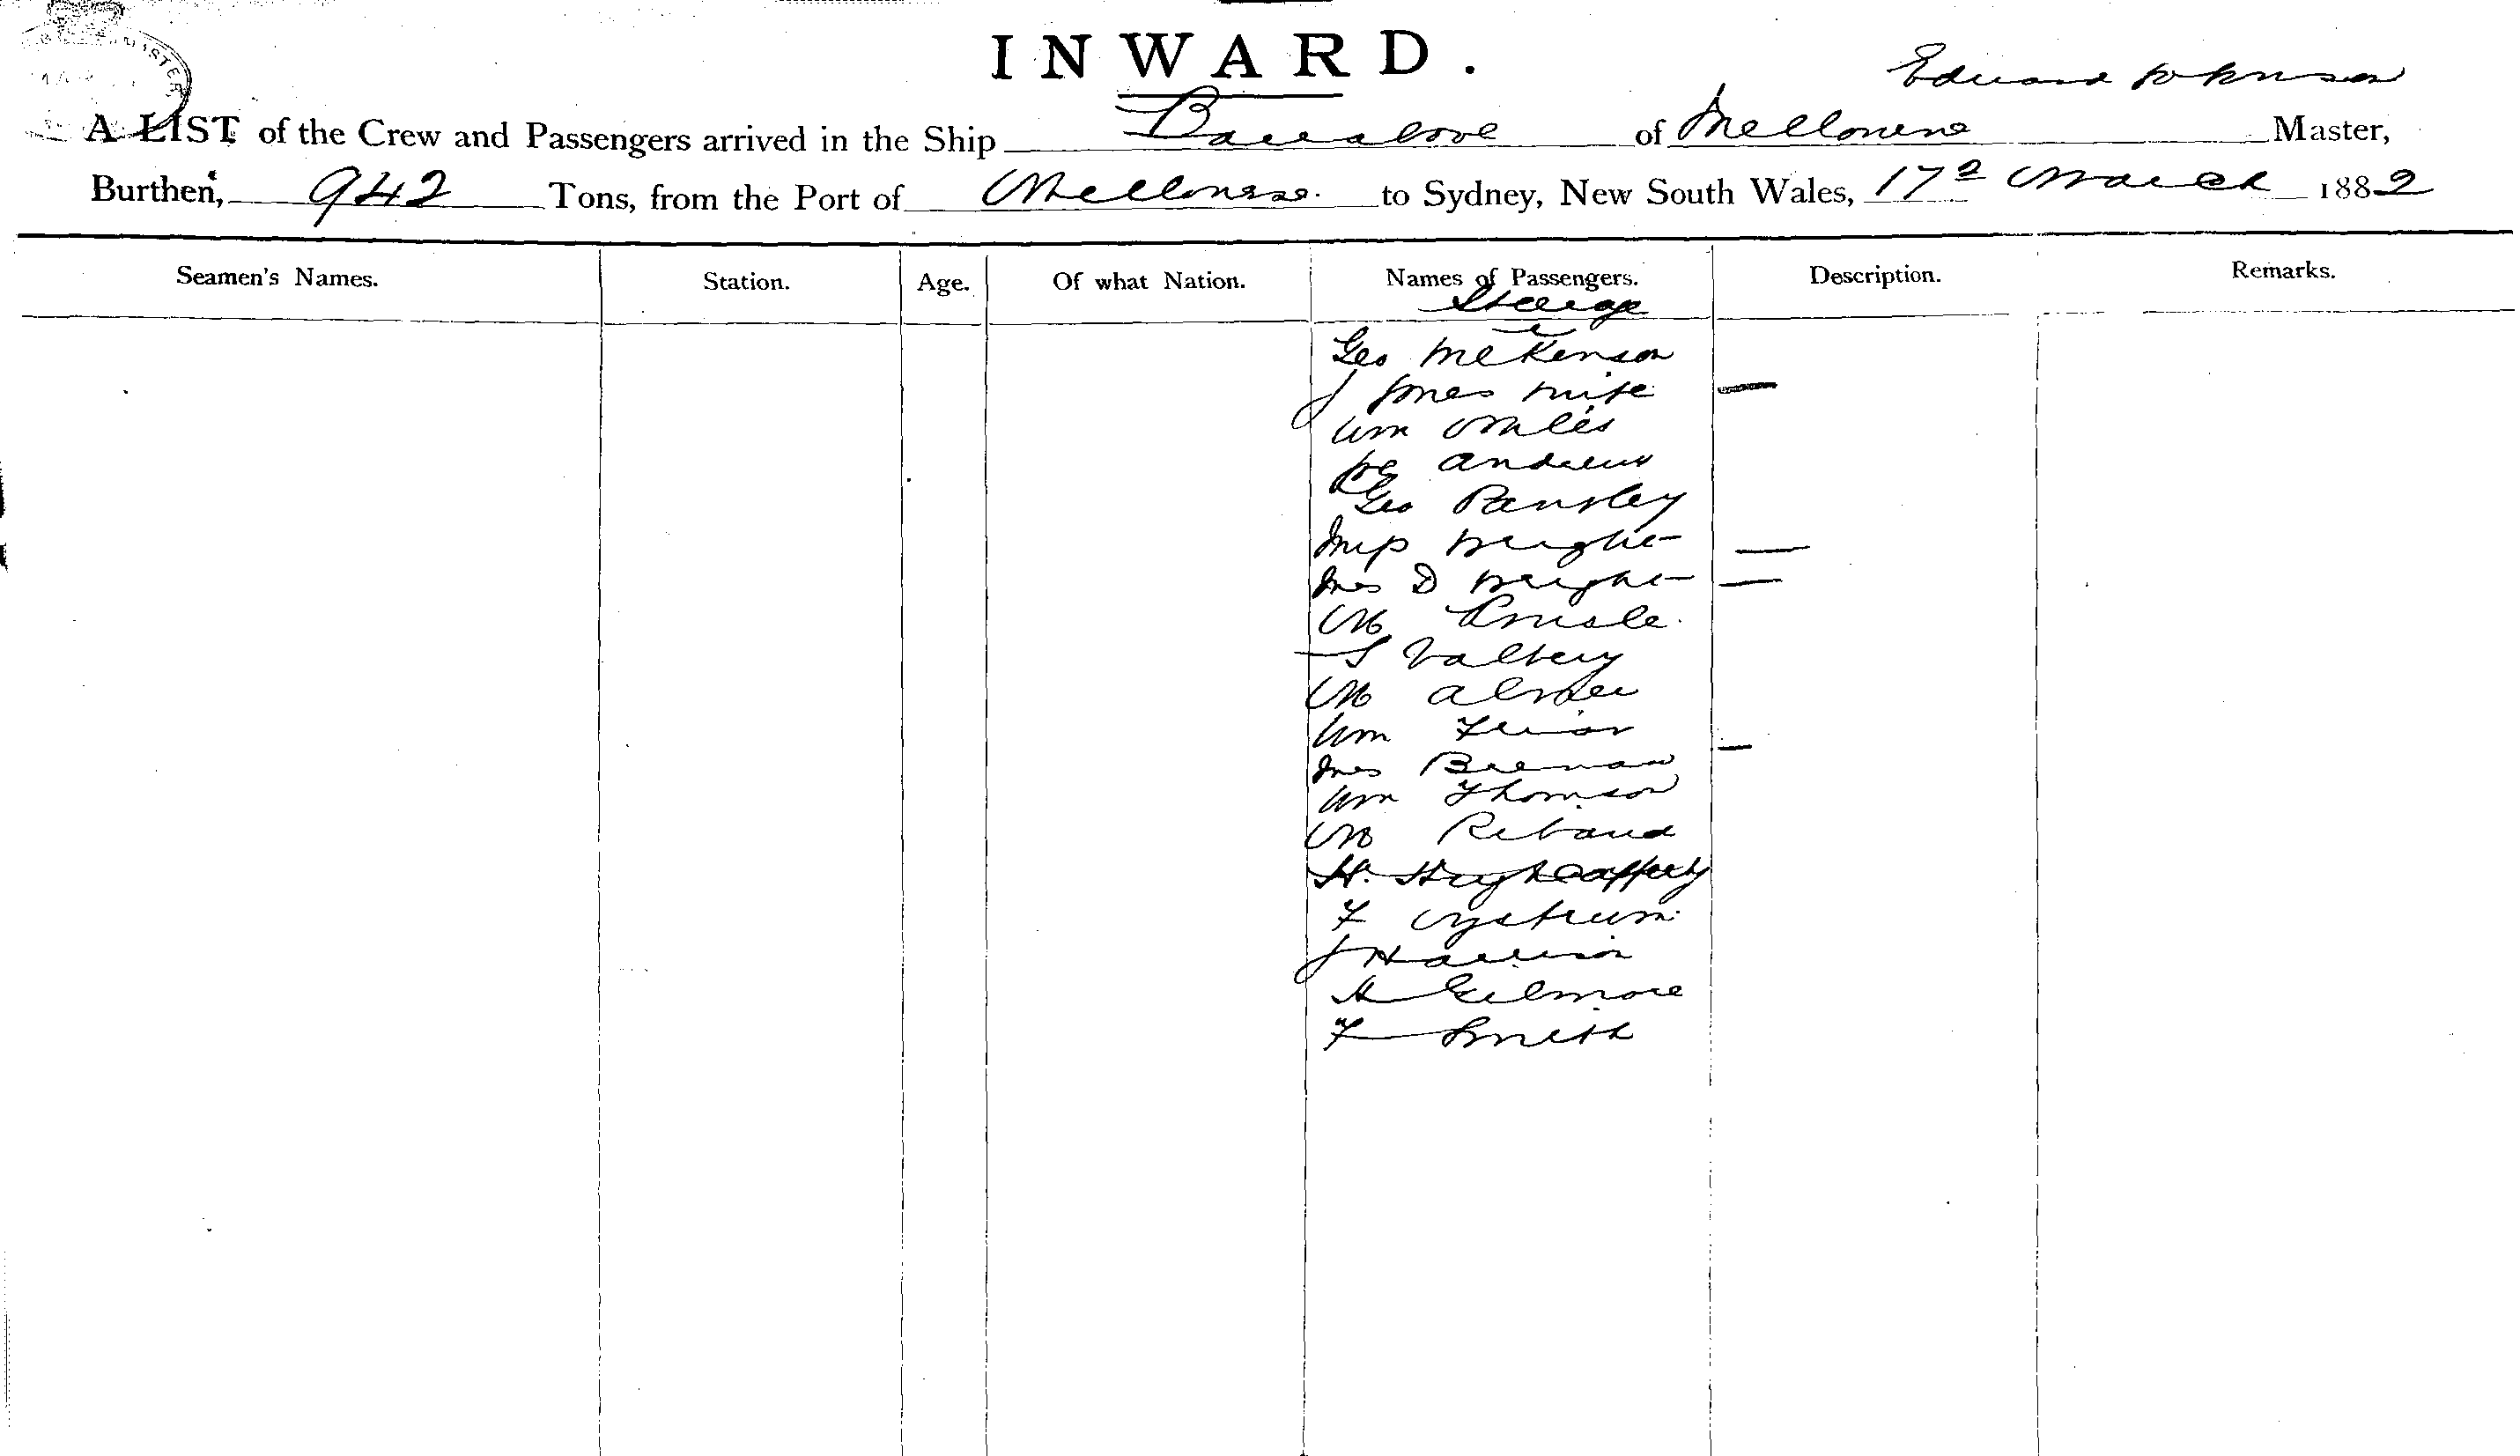 INWARD.
Edward Johnson
A LIST of the Crew and Passengers arrived in the Ship Barrabool of Melbourne Master,
Burthen, 942 Tons, from the Port of Melbourne to Sydney, New South Wales, 17th March 1882
Seamen's Names. Station. Age. Of what Nation. Names of Passengers. Description. Remarks.
Steerage
Geo McKenson
J Jones wife
Wm Miles
Andrews
Geo Pansley
Miss Wright
Mrs D Wright
M
S
M
Wm
Mrs Brennan
Wm Thomson
M Reband
H. Hugh Cafferty
F Nystrum
J Harrison
H Gilmore
F Smith